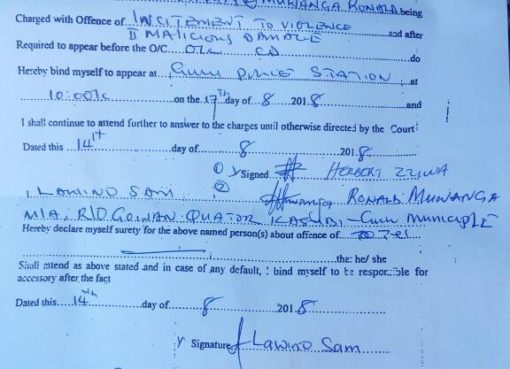 MUWANGA RONALD being
Charged with Offence of INCITEMENT TO VIOLENCE and after
II MALICIOUS DAMAGE
Required to appear before the O/C CD do
Hereby bind myself to appear at GULU POLICE STATION at
10:00/c on the 17th day of 8 2018 and
I shall continue to attend further to answer to the charges until otherwise directed by the Court
Dated this 14th day of 8 2018
① Signed HERBERT ZZIWA
② RONALD MUWANGA
I, LAWINO SAM
MIA, R/O GOLDAN QUATOR KASUBI - GULU MUNICIPLE
Hereby declare myself surety for the above named person(s) about offence of
that he/ she
Shall attend as above stated and in case of any default, I bind myself to be responsible for
accessory after the fact
Dated this 14th day of 8 2018
Signature LAWINO SAM